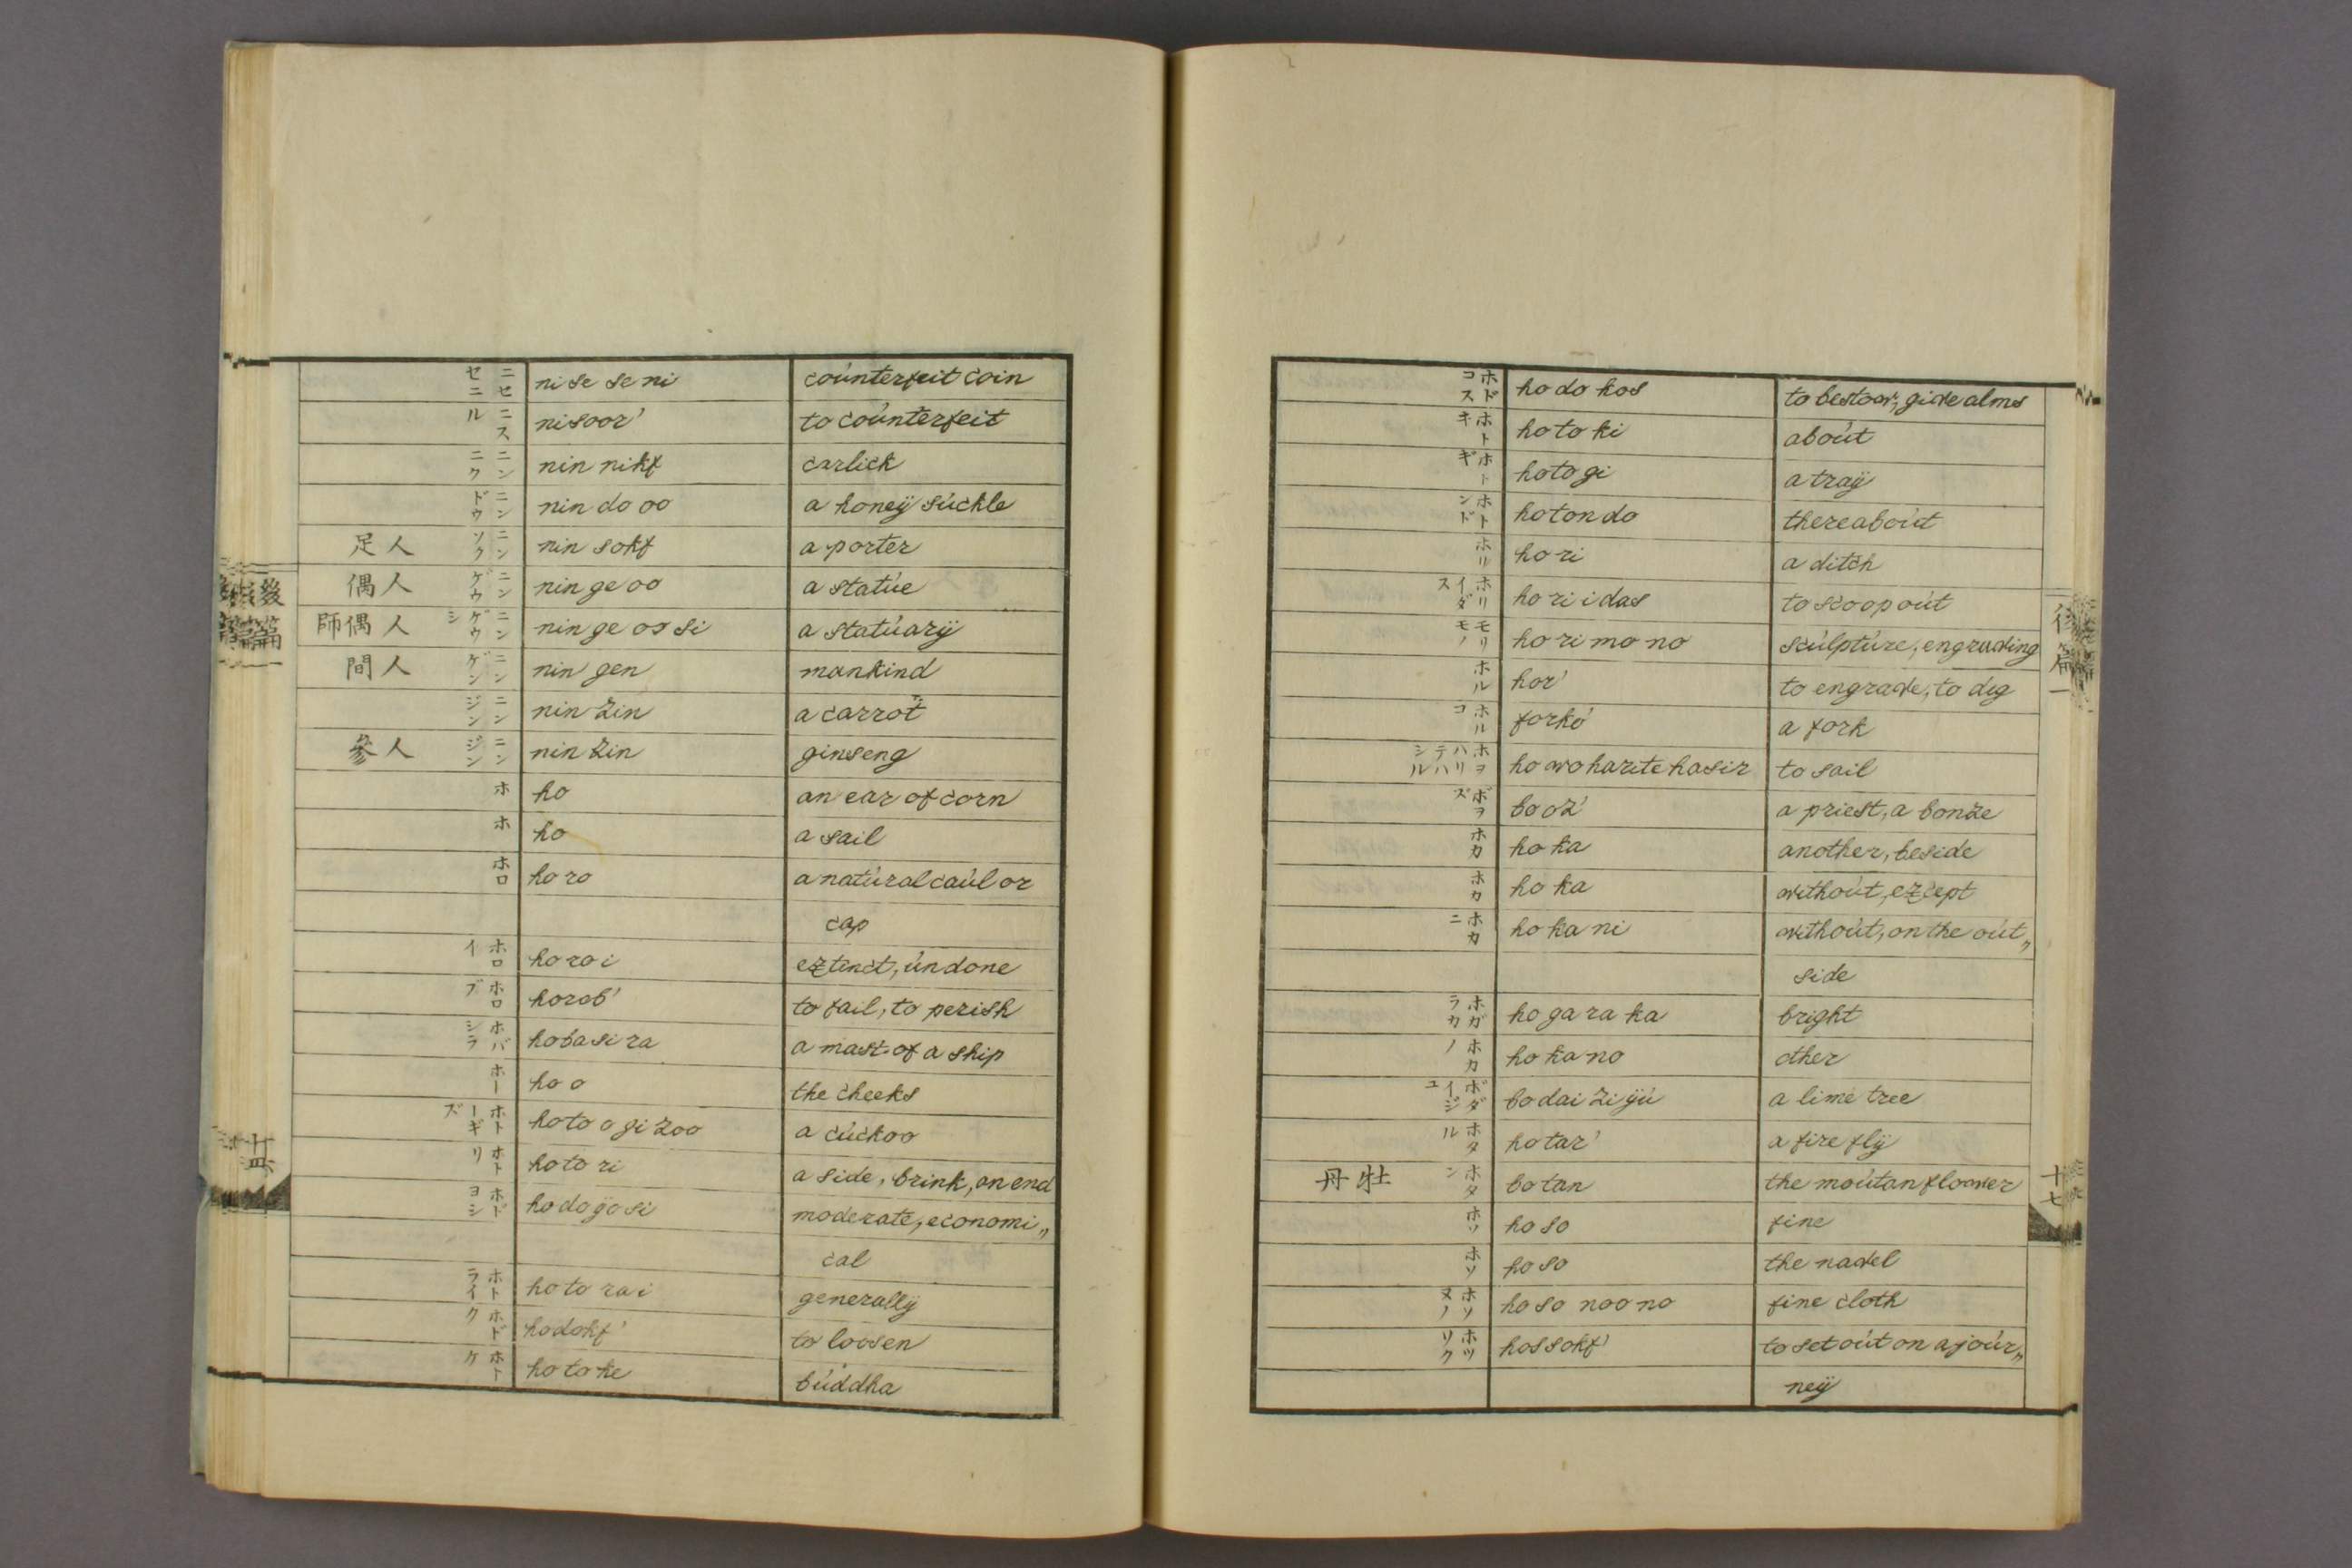 ニセセニ ni se se ni counterfeit coin
ニスル nisoor' to counterfeit
ニンニク nin nikf carlick
ニンドウ nin do oo a honeÿ suckle
人足 ニンソク nin sokf a porter
人偶 ニンゲウ nin ge oo a statue
人偶師 ニンゲウシ nin ge oo si a statuarÿ
人間 ニンゲン nin gen mankind
ニンジン nin zin a carrot
人參 ニンジン nin zin ginseng
ホ ho an ear of corn
ホ ho a sail
ホロ ho ro a natural caul or
cap
ホロイ ho ro i extinct, undone
ホロブ horob' to fail, to perish
ホバシラ hobasi ra a mast of a ship
ホー ho o the cheeks
ホトーギズ ho to o gi zoo a cuckoo
ホトリ ho to ri a side, brink, an end
ホドヨシ ho do ÿo si moderate, economi〃
cal
ホトライ ho to ra i generallÿ
ホドク hodokf' to loosen
ホトケ ho to ke buddha
後篇一
廿五
ホドコス ho do kos to bestow, give alms
ホトキ ho to ki about
ホトギ ho to gi a traÿ
ホトンド ho ton do thereabout
ホリ ho ri a ditch
ホリイダス ho ri i das to scoop out
モリモノ ho ri mo no sculpture, engraving
ホル hor' to engrave, to dig
ホルコ forko' a fork
ホヲハリテハシル ho wo harite hasir to sail
ボヲズ bo oz' a priest, a bonze
ホカ ho ka another, beside
ホカ ho ka without, except
ホカニ ho ka ni without, on the out〃
side
ホガラカ ho ga ra ka bright
ホカノ ho ka no other
ボダイジユ bo dai zi ÿu a lime tree
ホタル ho tar' a fire flÿ
牡丹 ホタン bo tan the moutan flower
ホソ ho so fine
ホソ ho so the navel
ホソヌノ ho so noo no fine cloth
ホツソク hos sokf' to set out on a jour〃
neÿ
後篇一
十七